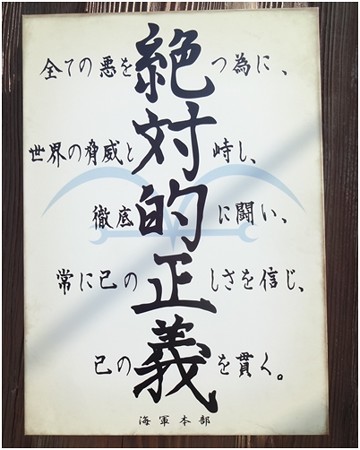 全ての悪を絶つ為に、
世界の脅威と対峙し、
徹底的に闘い、
常に己の正しさを信じ、
己の義を貫く。
海軍本部